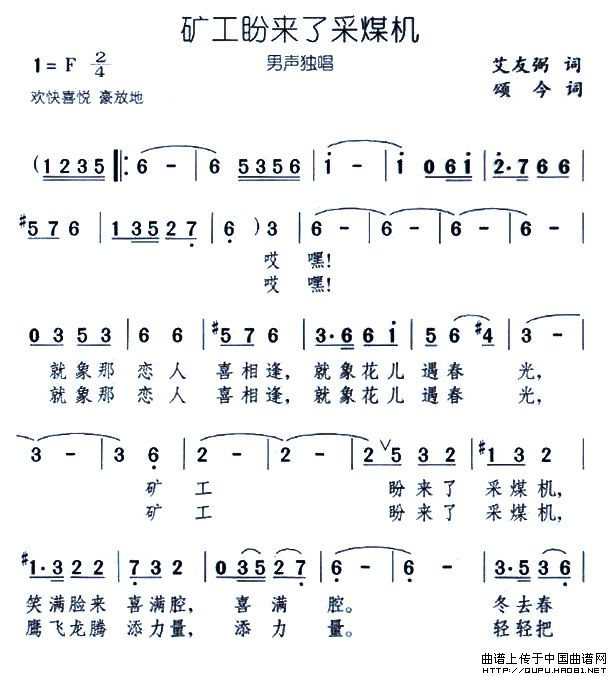 矿工盼来了采煤机
男声独唱
1=F 2/4
艾友弼 词
颂今 词
欢快喜悦 豪放地
(1235 ‖: 6 - | 6 5356 | i - | i 061 | 2·766 |
#576 | 13527 | 6 ) 3 | 6 - | 6 - | 6 - | 6 - |
哎嘿!
哎嘿!
0353 | 66 | #576 | 3·661 | 56 #4 | 3 - |
就象那 恋人 喜相逢, 就象花儿 遇春 光,
就象那 恋人 喜相逢, 就象花儿 遇春 光,
3 - | 3 6 | 2 - | 2 - | 2 ∨5 32 | #132 |
矿 工 盼来了 采煤机,
矿 工 盼来了 采煤机,
#1·322 | 732 | 0352 | 7 - | 3·536 |
笑满脸来 喜满腔, 喜满腔。 冬去春
鹰飞龙腾 添力量, 添力量。 轻轻把
曲谱上传于中国曲谱网
HTTP://QUPU.HAO81.NET